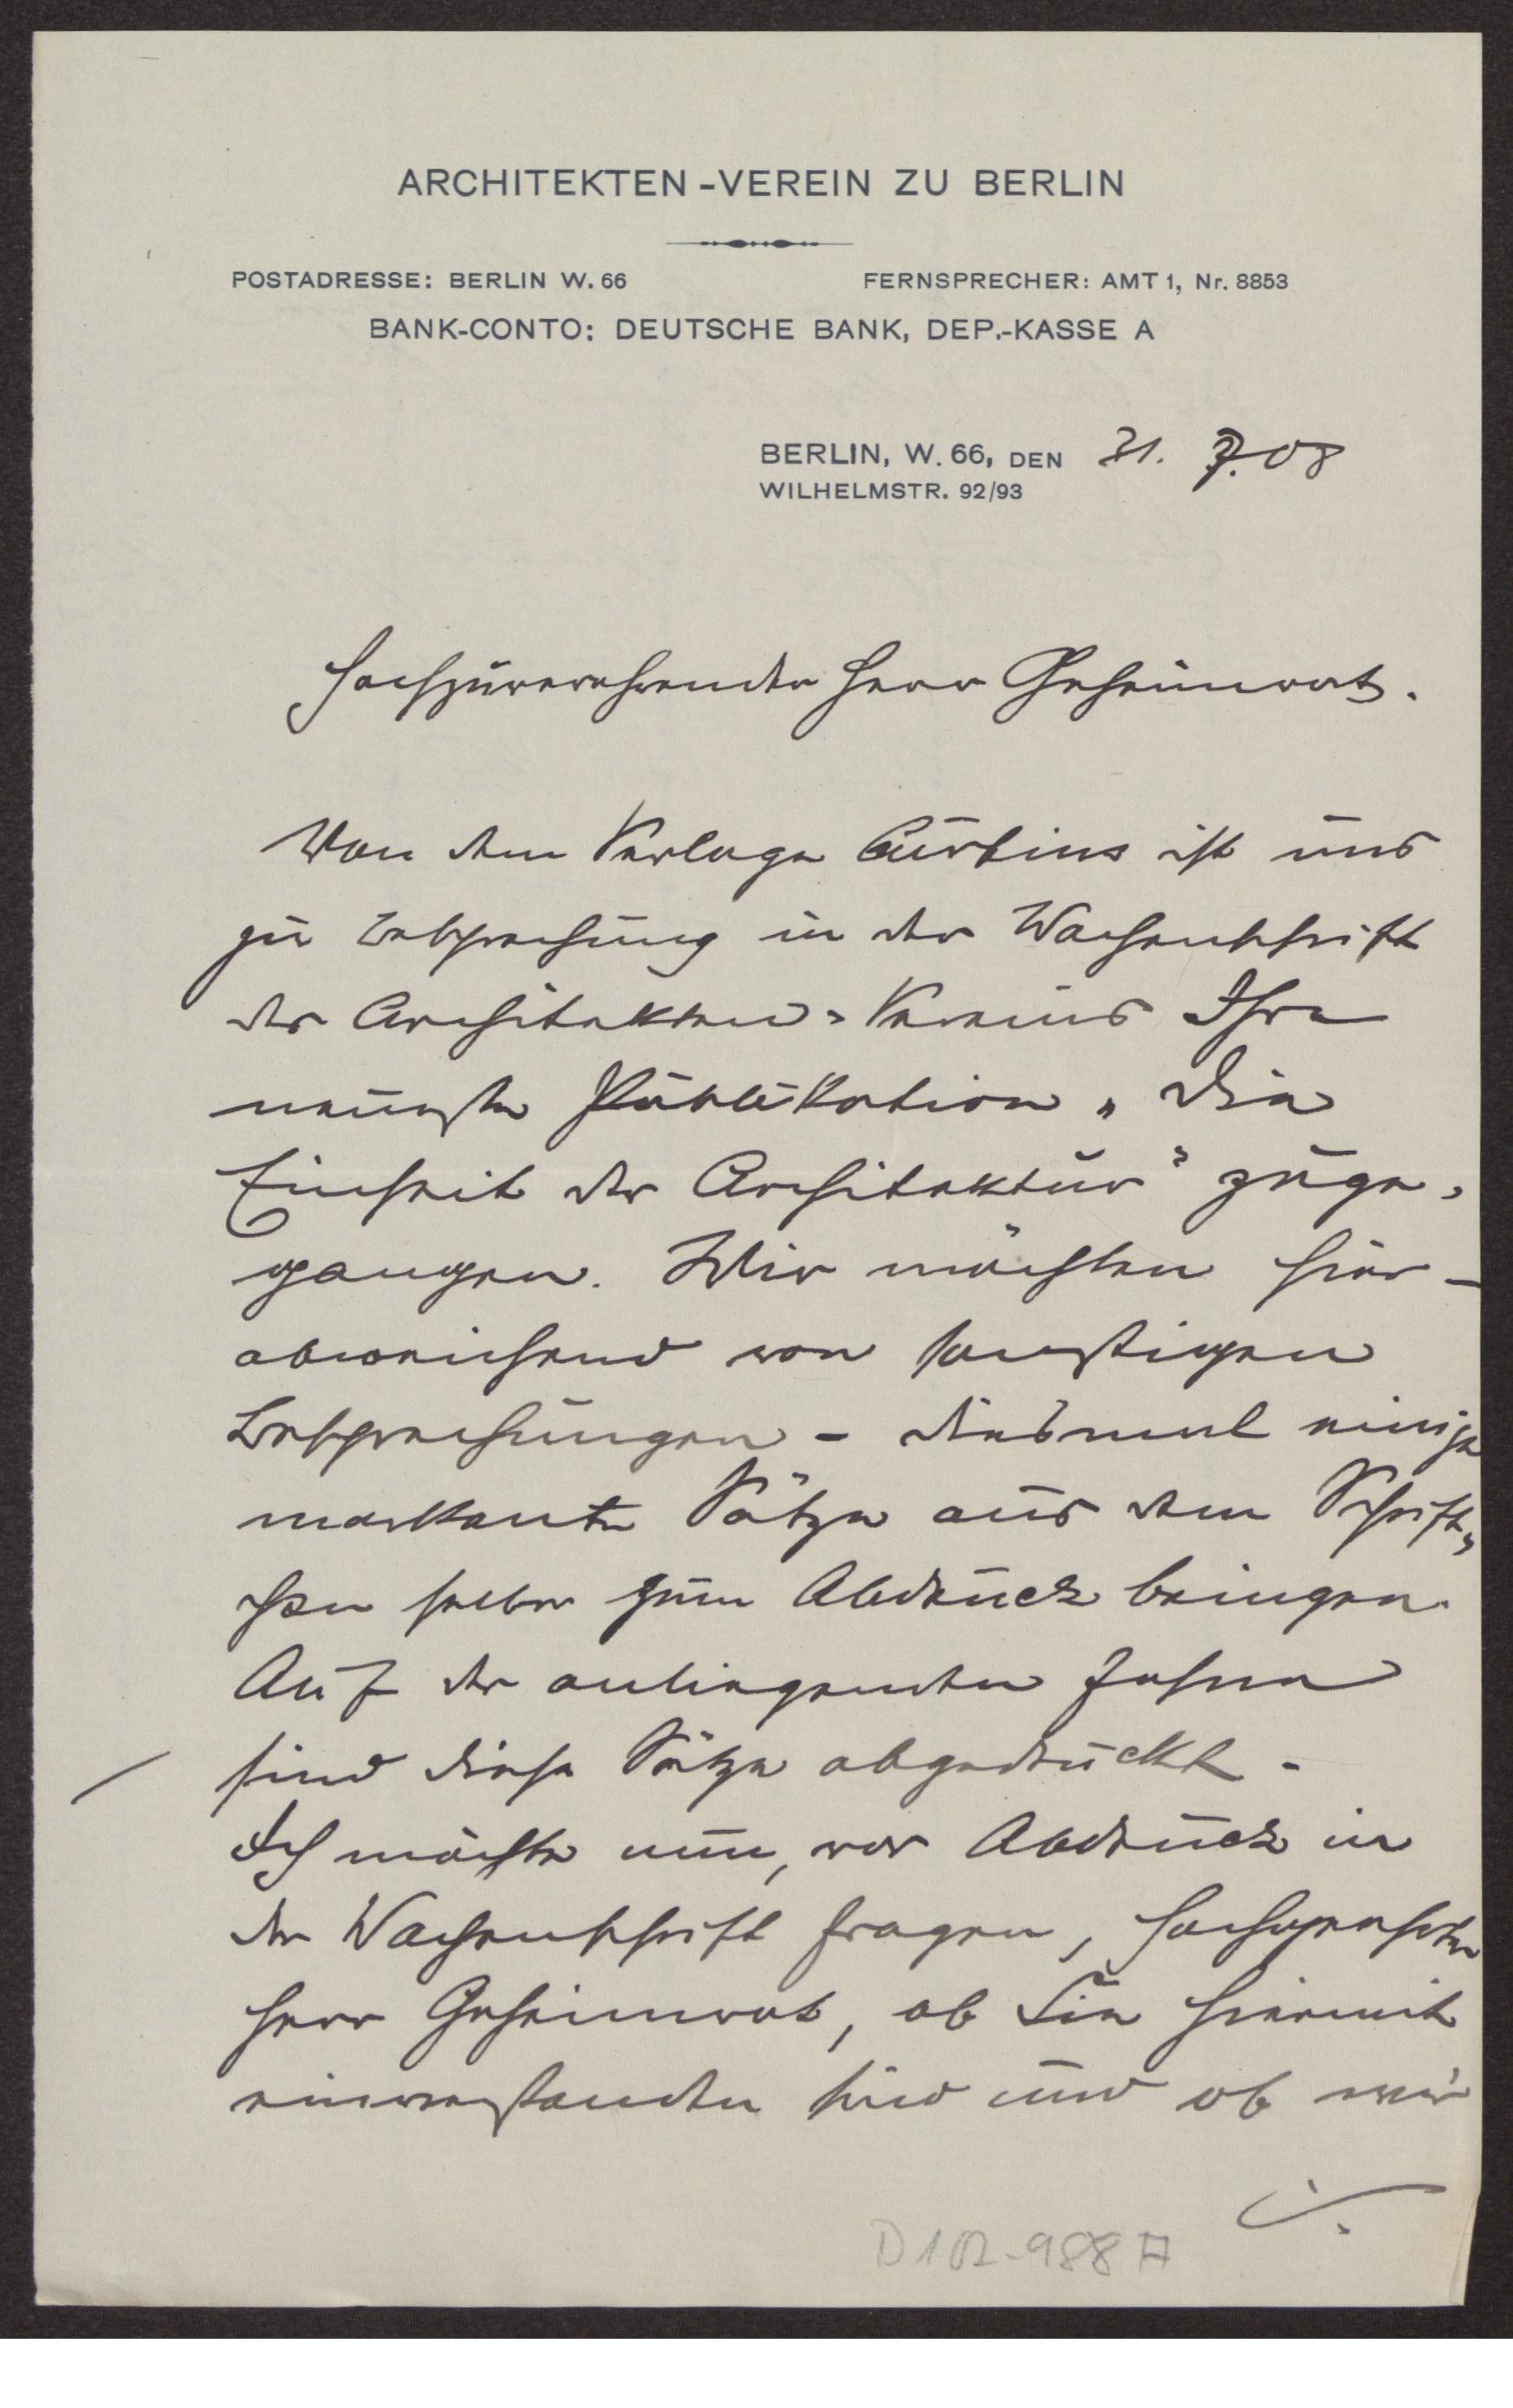 ARCHITEKTEN-VEREIN ZU BERLIN
POSTADRESSE: BERLIN W. 66 FERNSPRECHER: AMT 1, Nr. 8853
BANK-CONTO: DEUTSCHE BANK, DEP.-KASSE A
BERLIN, W. 66, DEN 31. 7. 08
WILHELMSTR. 92/93
Hochzuverehrender Herr Geheimrat.
Von dem Verlage Curtius ist uns
zu Besprechung in der Wochenschrift
des Architekten-Vereins Ihre
neueste Publikation „Die
Einheit der Architektur" zuge-
gangen. Wir möchten hier –
abweichend von sonstigen
Besprechungen – diesmal einige
markante Sätze aus dem Schrift-
chen selber zum Abdruck bringen.
Auf der anliegenden Fahne
sind diese Sätze abgedruckt.
Ich möchte nun, vor Abdruck in
der Wochenschrift fragen, hochgeehrter
Herr Geheimrat, ob Sie hiermit
einverstanden sind und ob wir
D102-988A